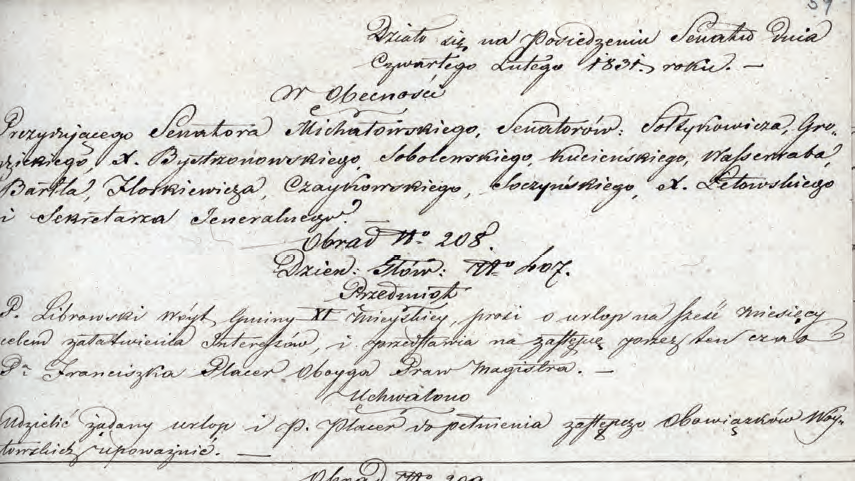 59
Działo się na Posiedzeniu Senatu Dnia
Czwartego Lutego 1831. roku. —
W Obecności
Prezydującego Senatora Michałowskiego, Senatorów: Sołtykowicza, Gro-
dzickiego, X. Bystrzonowskiego, Sobolewskiego, Kucieńskiego, Wasseraba,
Bartla, Florkiewicza, Czaykowskiego, Soczyńskiego, X. Łętowskiego
i Sekretarza Jeneralnego. —
Obrad No. 208.
Dzien: Głów: No 607.
Przedmiot
P. Librowski Wóyt Gminy XI Mieyskiey, prosi o urlop na sześć miesięcy
celem załatwienia Interesów, i przedstawia na zastępcę przez ten czas
P. Franciszka Placer Oboyga Praw Magistra. —
Uchwalono
Udzielić żądany urlop i P. Placer do pełnienia zastępczo Obowiązków Wóy-
towskich upoważnić. —
Obrad No 209